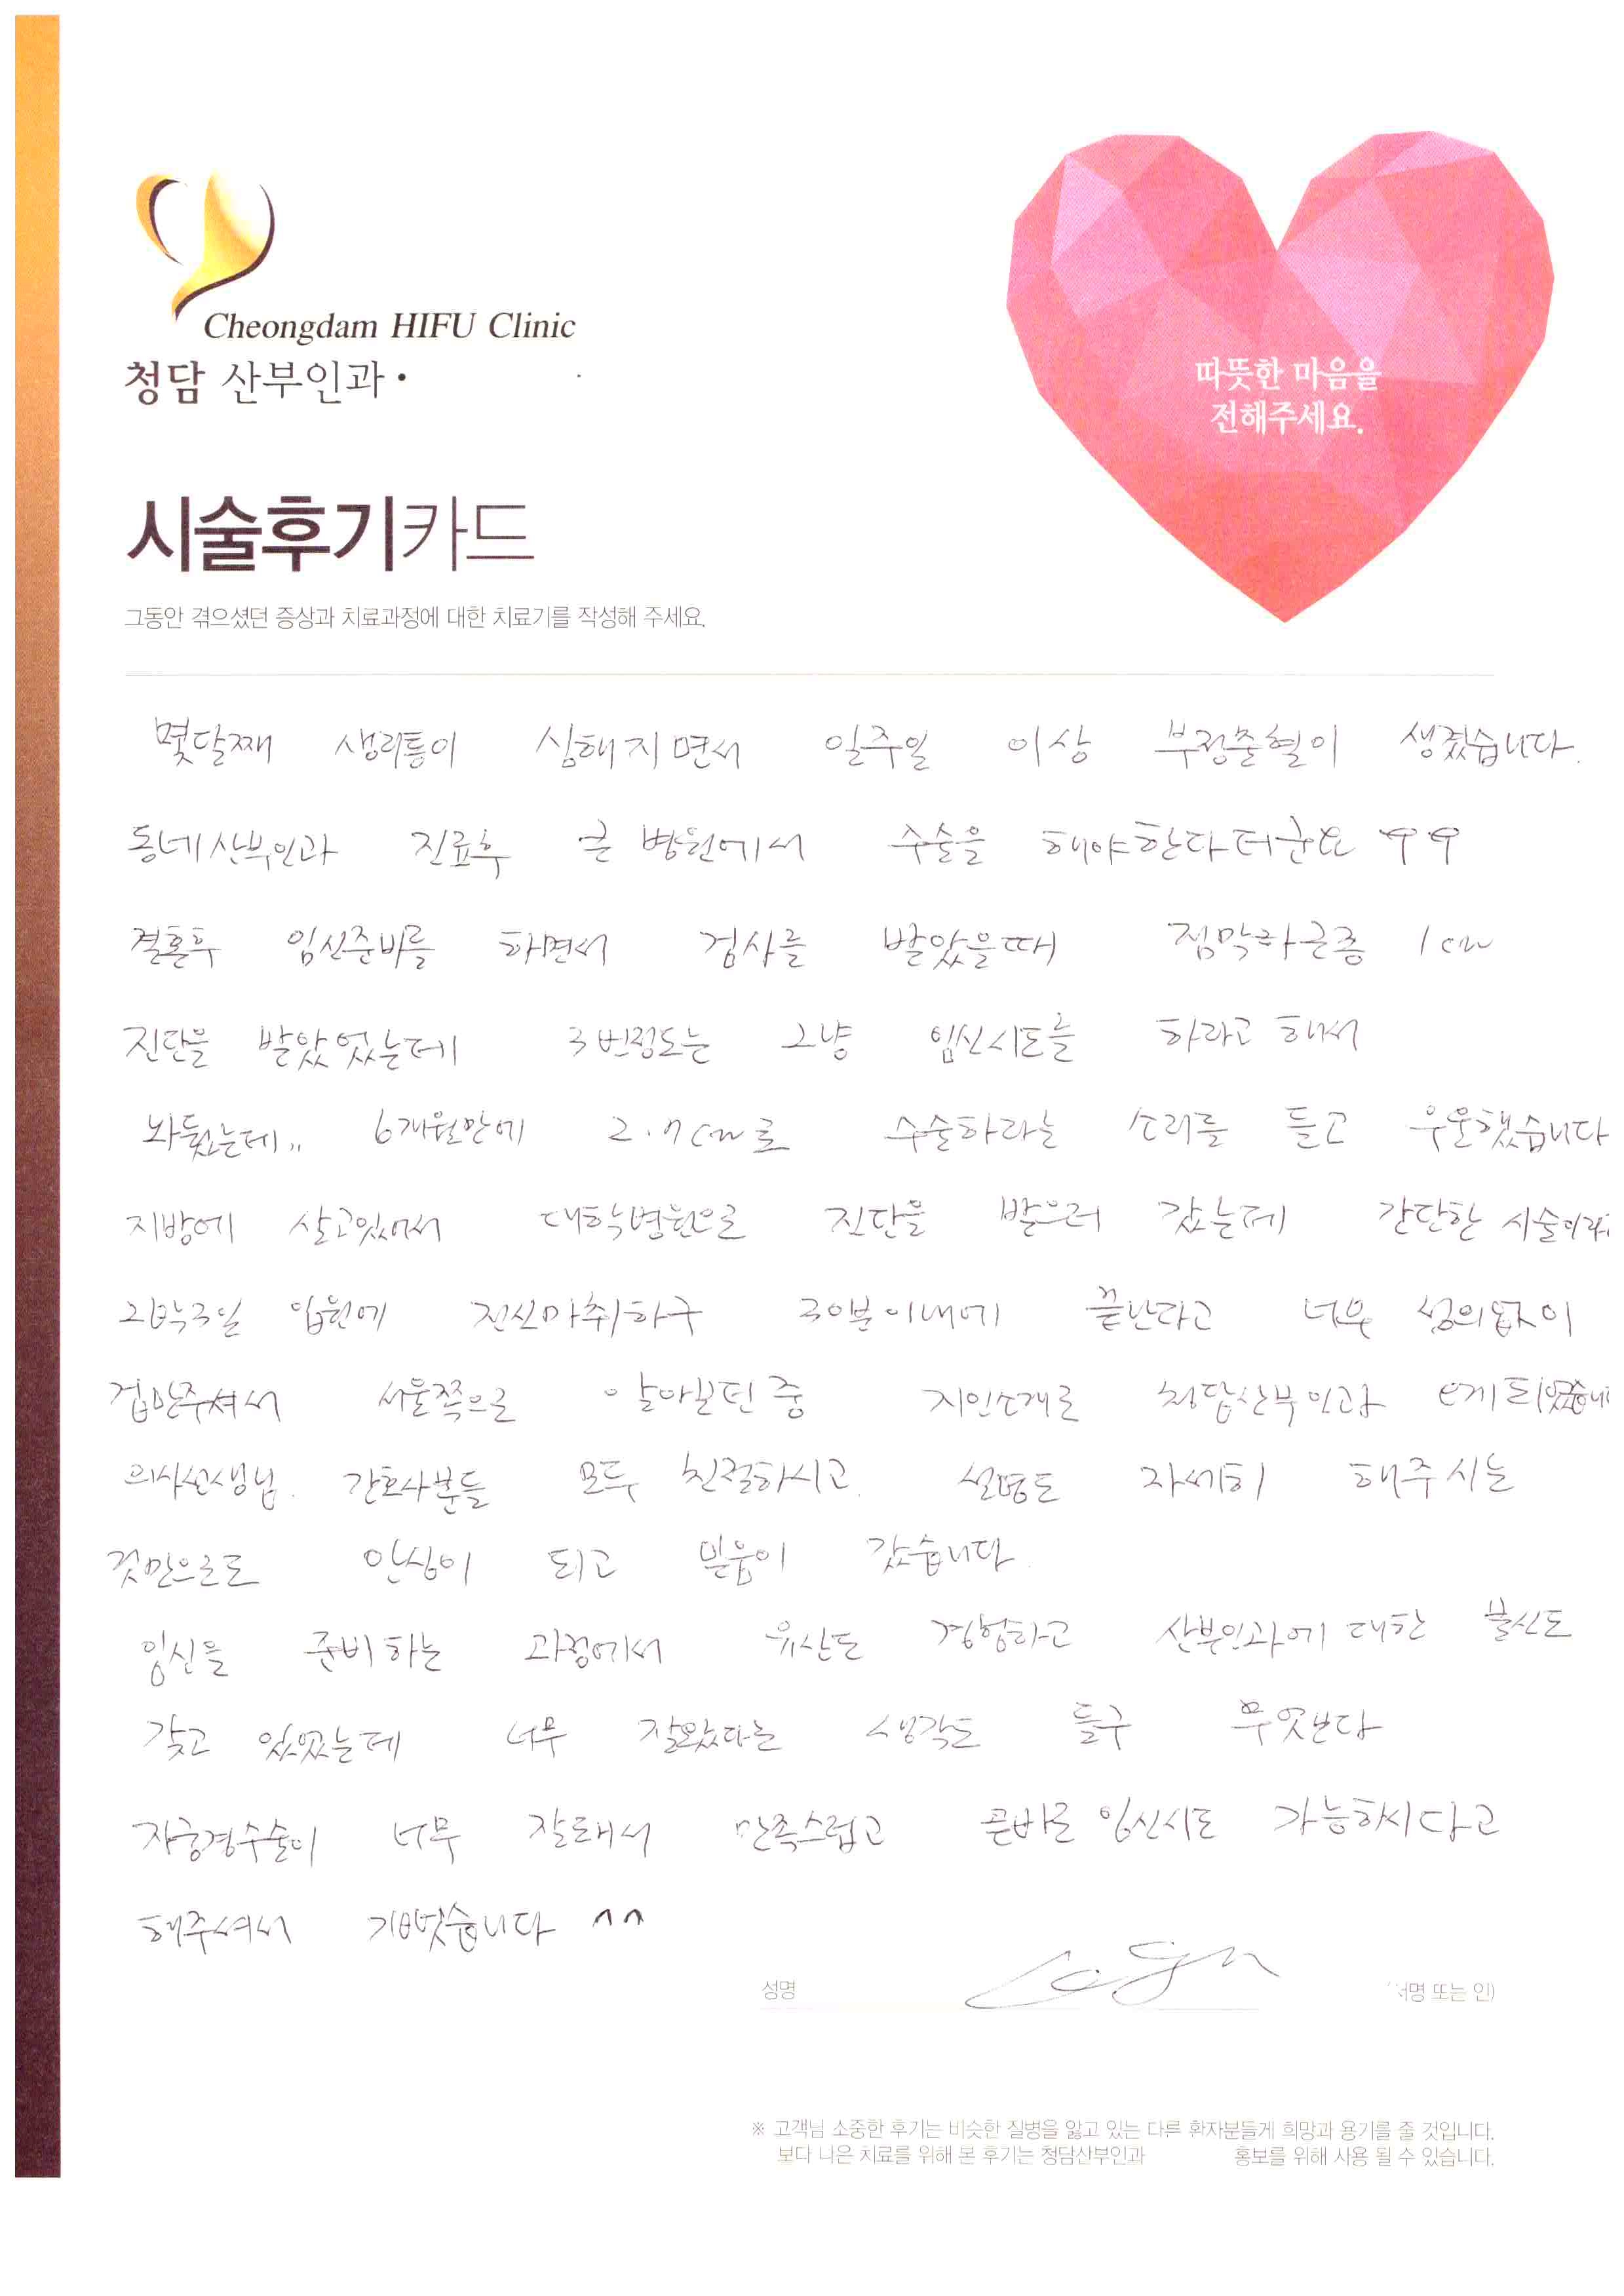 Cheongdam HIFU Clinic
청담 산부인과•
따뜻한 마음을
전해주세요.
시술후기카드
그동안 겪으셨던 증상과 치료과정에 대한 치료기를 작성해 주세요.
몇달째 생리통이 심해지면서 일주일 이상 부정출혈이 생겼습니다.
동네산부인과 진료후 큰 병원에서 수술을 해야한다더군요 ㅠㅠ
결혼후 임신준비를 하면서 검사를 받았을때 점막하근종 1cm
진단을 받았었는데 3번정도는 그냥 임신시도를 하라고 해서
놔뒀는데,, 6개월만에 2.7cm로 수술하라는 소리를 듣고 우울했습니다
지방에 살고있어서 대학병원으로 진단을 받으러 갔는데 간단한 시술이라고
2박3일 입원에 전신마취하구 30분이내에 끝난다고 너무 성의없이
겁만주셔서 서울쪽으로 알아보던 중 지인소개로 청담산부인과
의사선생님. 간호사분들 모두 친절하시고 설명도 자세히 해주시는
것만으로도 안심이 되고 믿음이 갔습니다.
임신을 준비하는 과정에서 유산도 경험하고 산부인과에 대한 불신도
갖고 있었는데 너무 잘왔다는 생각도 들구 무엇보다
자궁경수술이 너무 잘돼서 만족스럽고 곧바로 임신시도 가능하시다고
해주셔서 기뻤습니다 ^^
성명 (서명 또는 인)
※ 고객님 소중한 후기는 비슷한 질병을 앓고 있는 다른 환자분들게 희망과 용기를 줄 것입니다.
보다 나은 치료를 위해 본 후기는 청담산부인과 홍보를 위해 사용 될 수 있습니다.